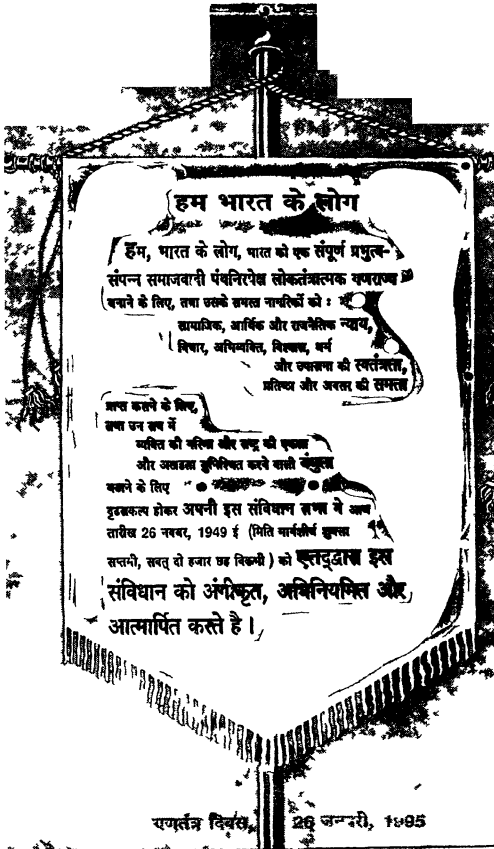 हम भारत के लोग
हम, भारत के लोग, भारत को एक संपूर्ण प्रभुत्व-
संपन्न समाजवादी पंथनिरपेक्ष लोकतंत्रात्मक गणराज्य
बनाने के लिए, तथा उसके समस्त नागरिकों को :
सामाजिक, आर्थिक और राजनैतिक न्याय,
विचार, अभिव्यक्ति, विश्वास, धर्म
और उपासना की स्वतंत्रता,
प्रतिष्ठा और अवसर की समता
प्राप्त कराने के लिए,
तथा उन सब में
व्यक्ति की गरिमा और राष्ट्र की एकता
और अखंडता सुनिश्चित करने वाली बंधुता
बढाने के लिए
दृढसकल्प होकर अपनी इस संविधान सभा मे आज
तारीख 26 नवबर, 1949 ई (मिति मार्गशीर्ष शुक्ला
सप्तमी, सवत् दो हजार छह विक्रमी ) को एतद्द्वारा इस
संविधान को अंगीकृत, अधिनियमित और
आत्मार्पित करते है।
गणतंत्र दिवस, 26 जनवरी, 1995